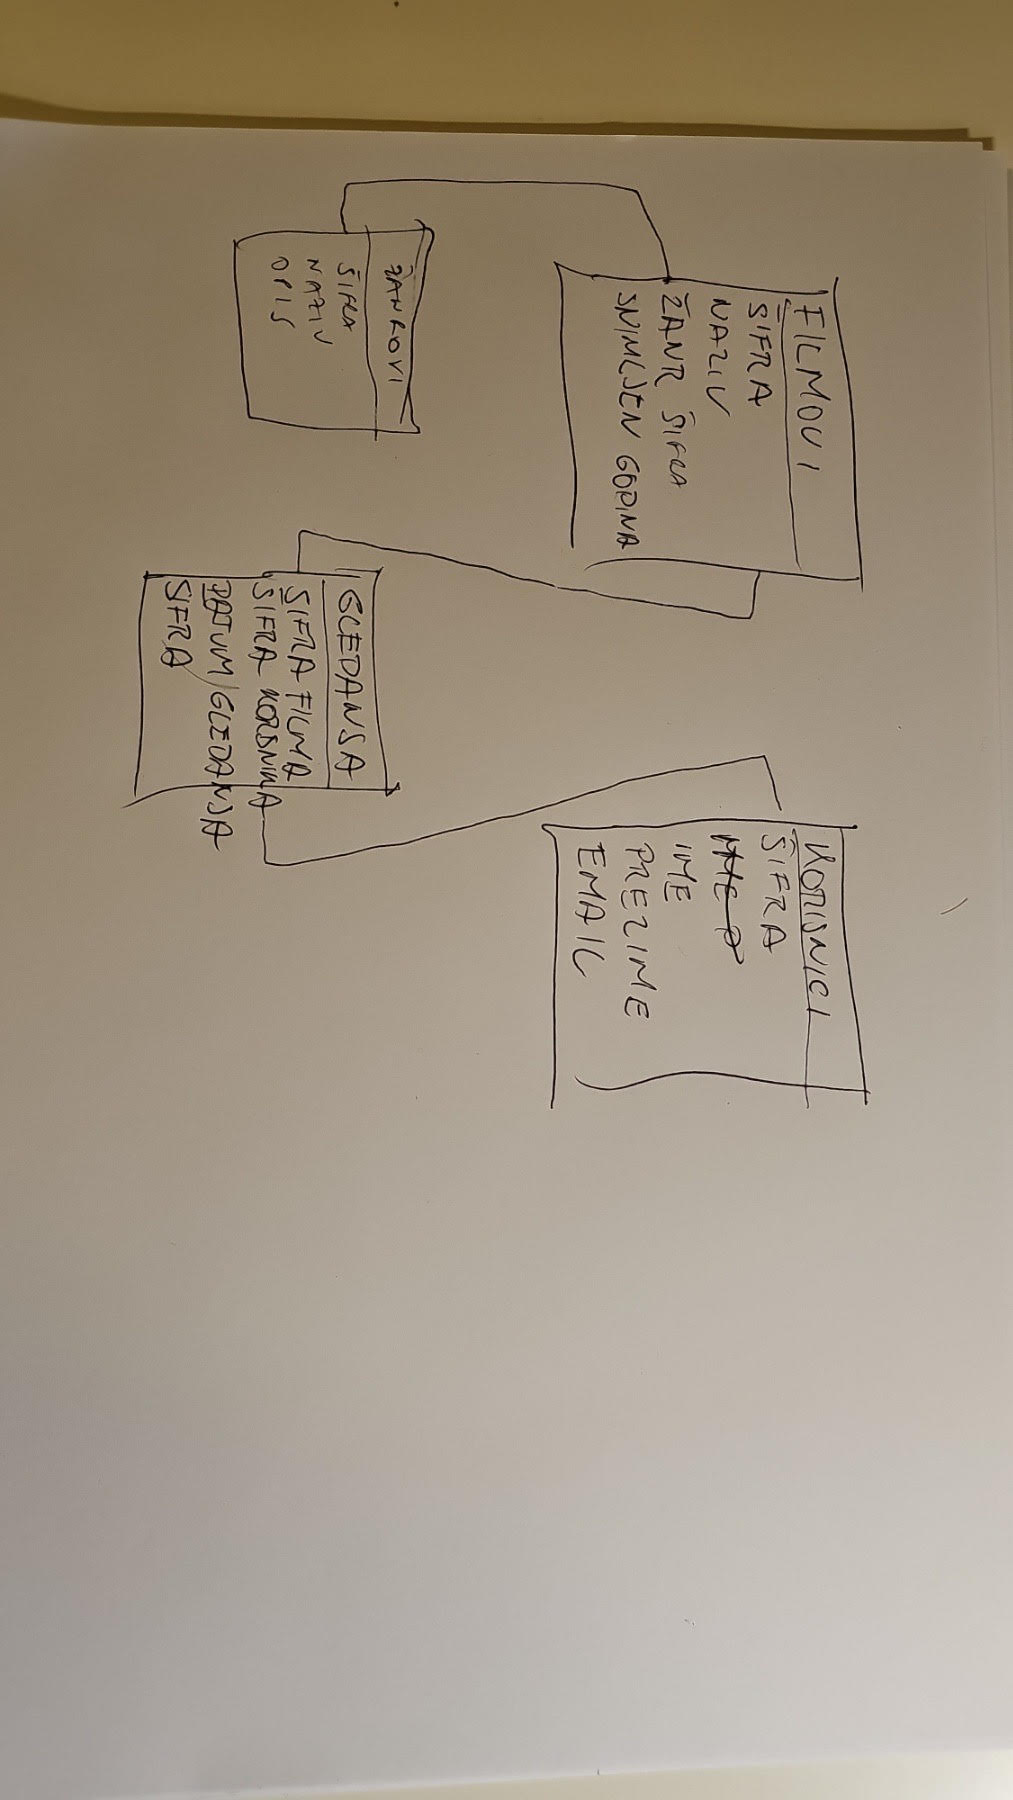 FILMOVI
ŠIFRA
NAZIV
ŽANR ŠIFRA
SNIMLJEN GODINA
KORISNICI
ŠIFRA
IME P
IME
PREZIME
EMAIL
ŽANROVI
ŠIFRA
NAZIV
OPIS
GLEDANJA
ŠIFRA FILMA
ŠIFRA KORISNIKA
DATUM GLEDANJA
ŠIFRA